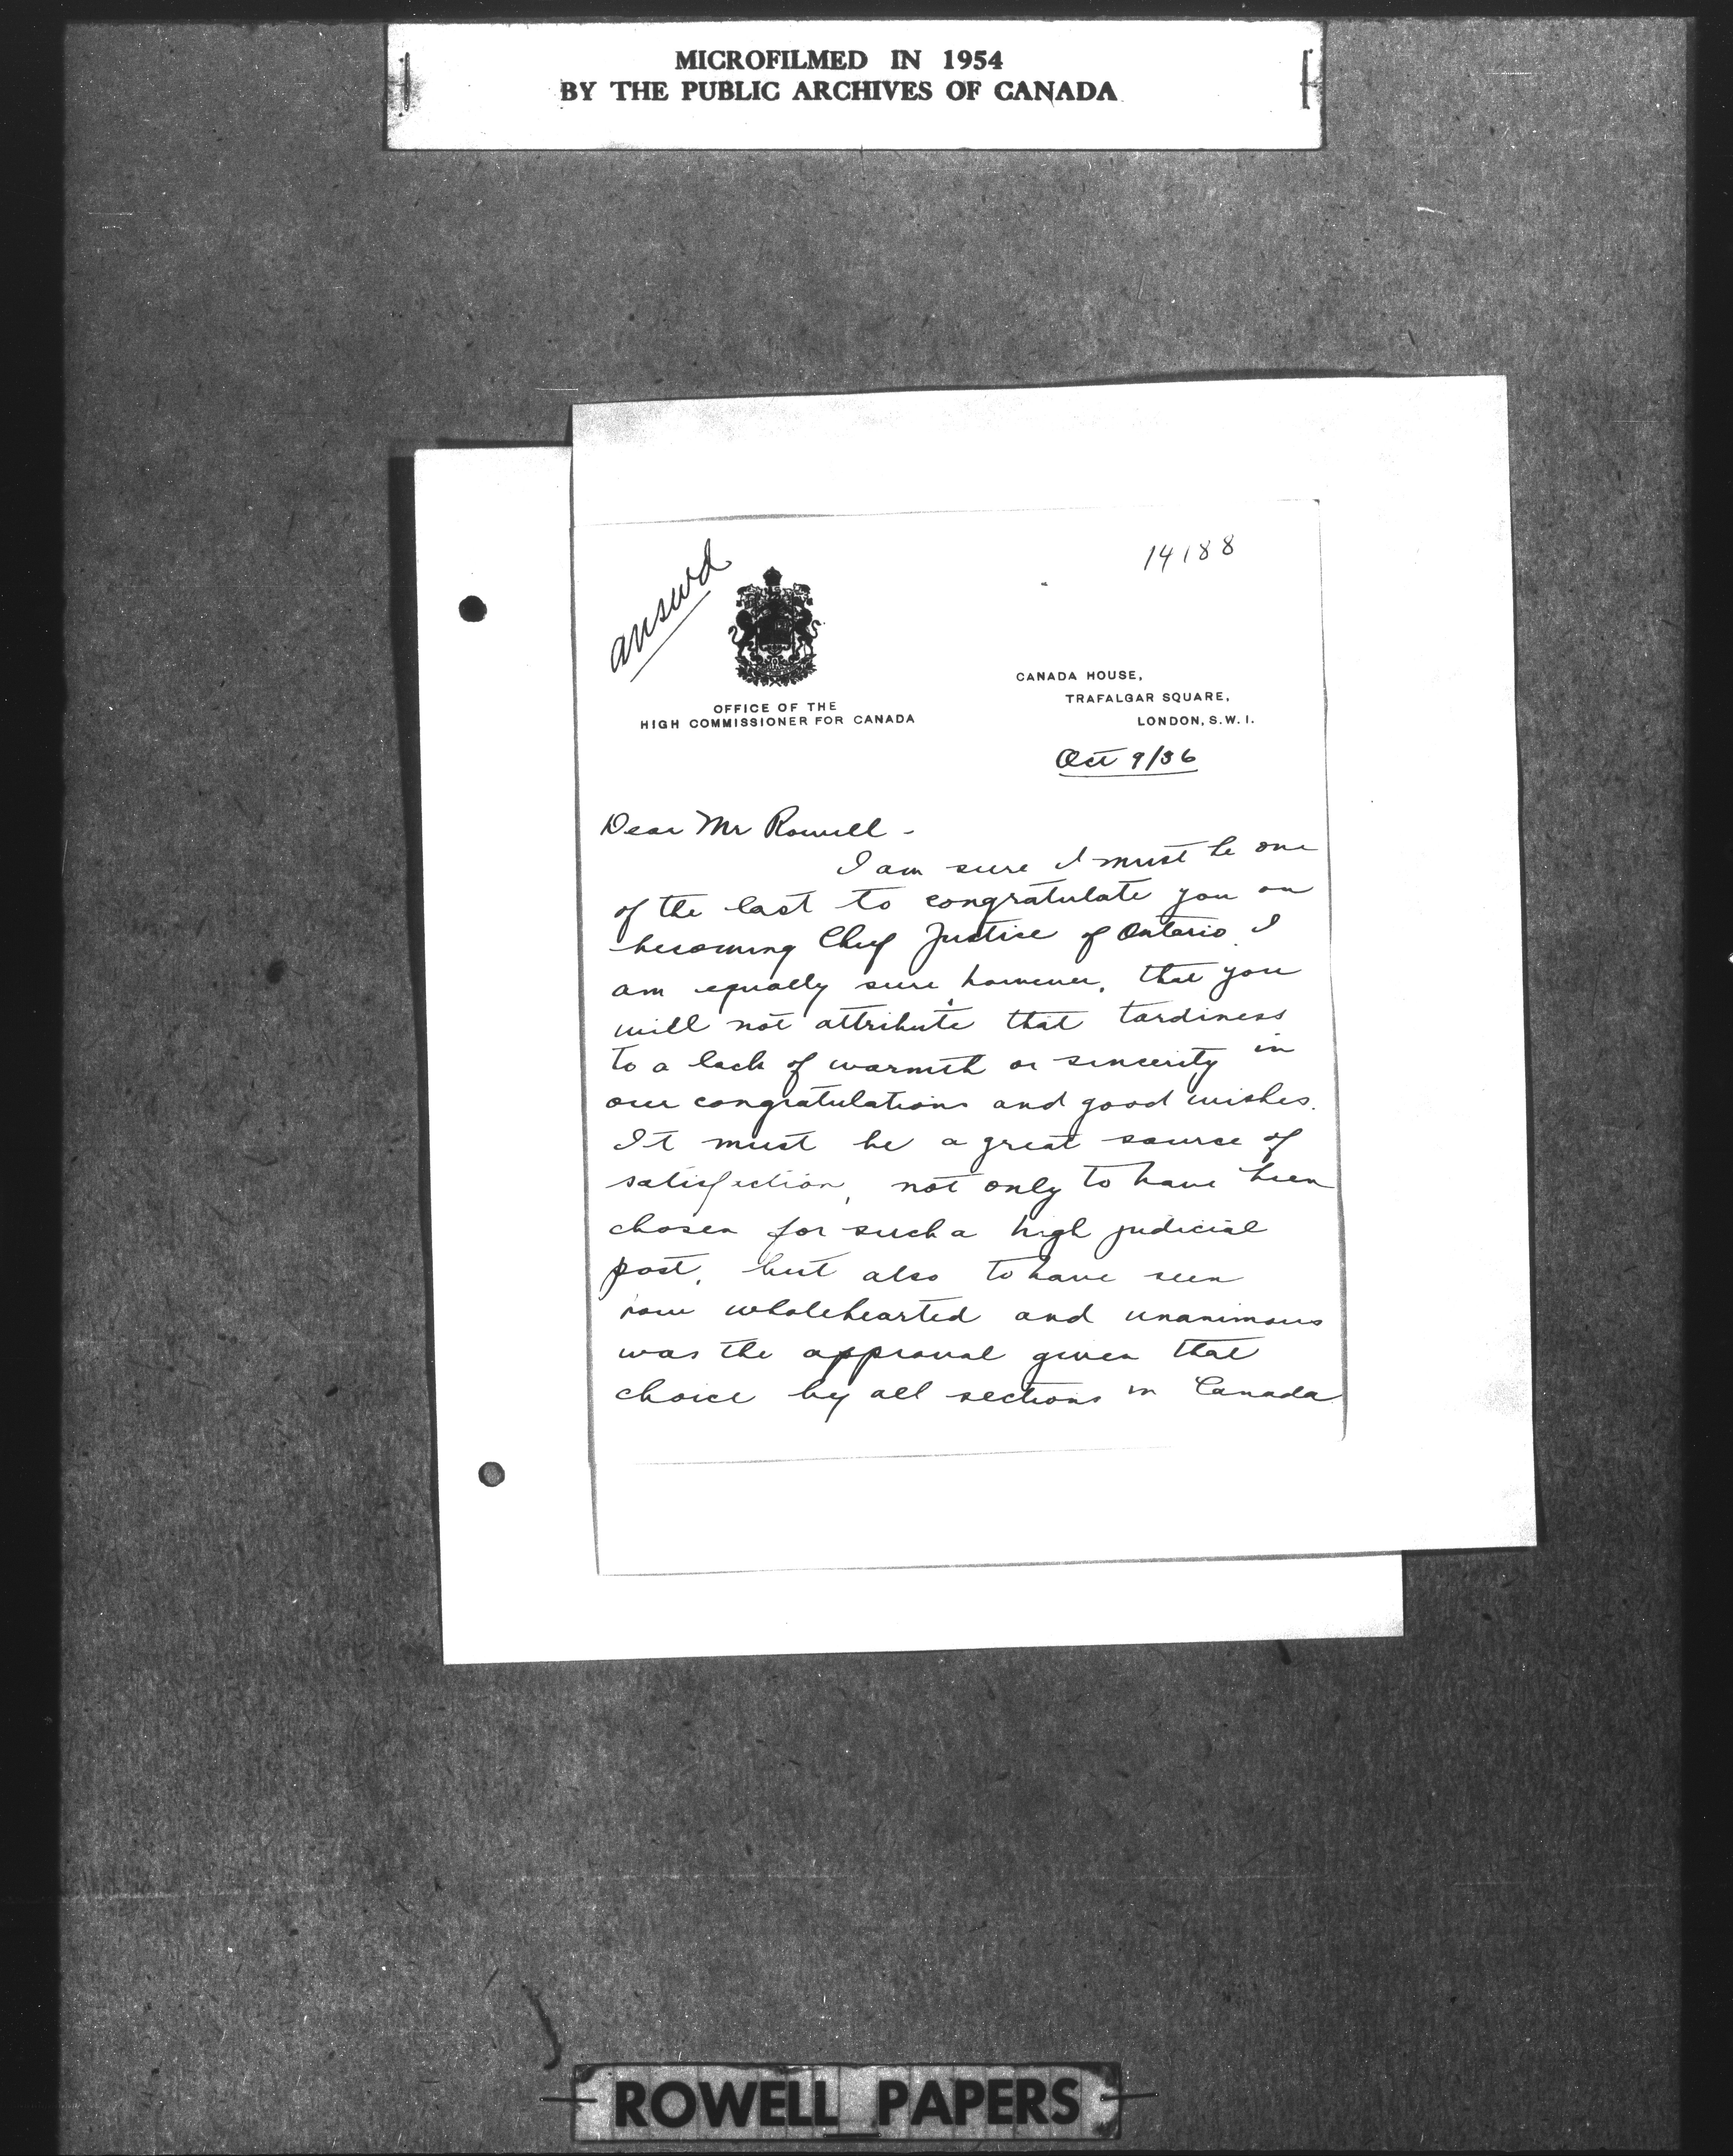 MICROFILMED IN 1954
BY THE PUBLIC ARCHIVES OF CANADA
14188
answd
OFFICE OF THE
HIGH COMMISSIONER FOR CANADA
CANADA HOUSE,
TRAFALGAR SQUARE,
LONDON, S.W.1.
Oct 9/36
Dear Mr Rowell -
I am sure I must be one
of the last to congratulate you on
becoming Chief Justice of Ontario. I
am equally sure, however, that you
will not attribute that tardiness
to a lack of warmth or sincerity in
our congratulations and good wishes.
It must be a great source of
satisfaction, not only to have been
chosen for such a high judicial
post, but also to have seen
how wholehearted and unanimous
was the approval given that
choice by all sections in Canada
ROWELL PAPERS